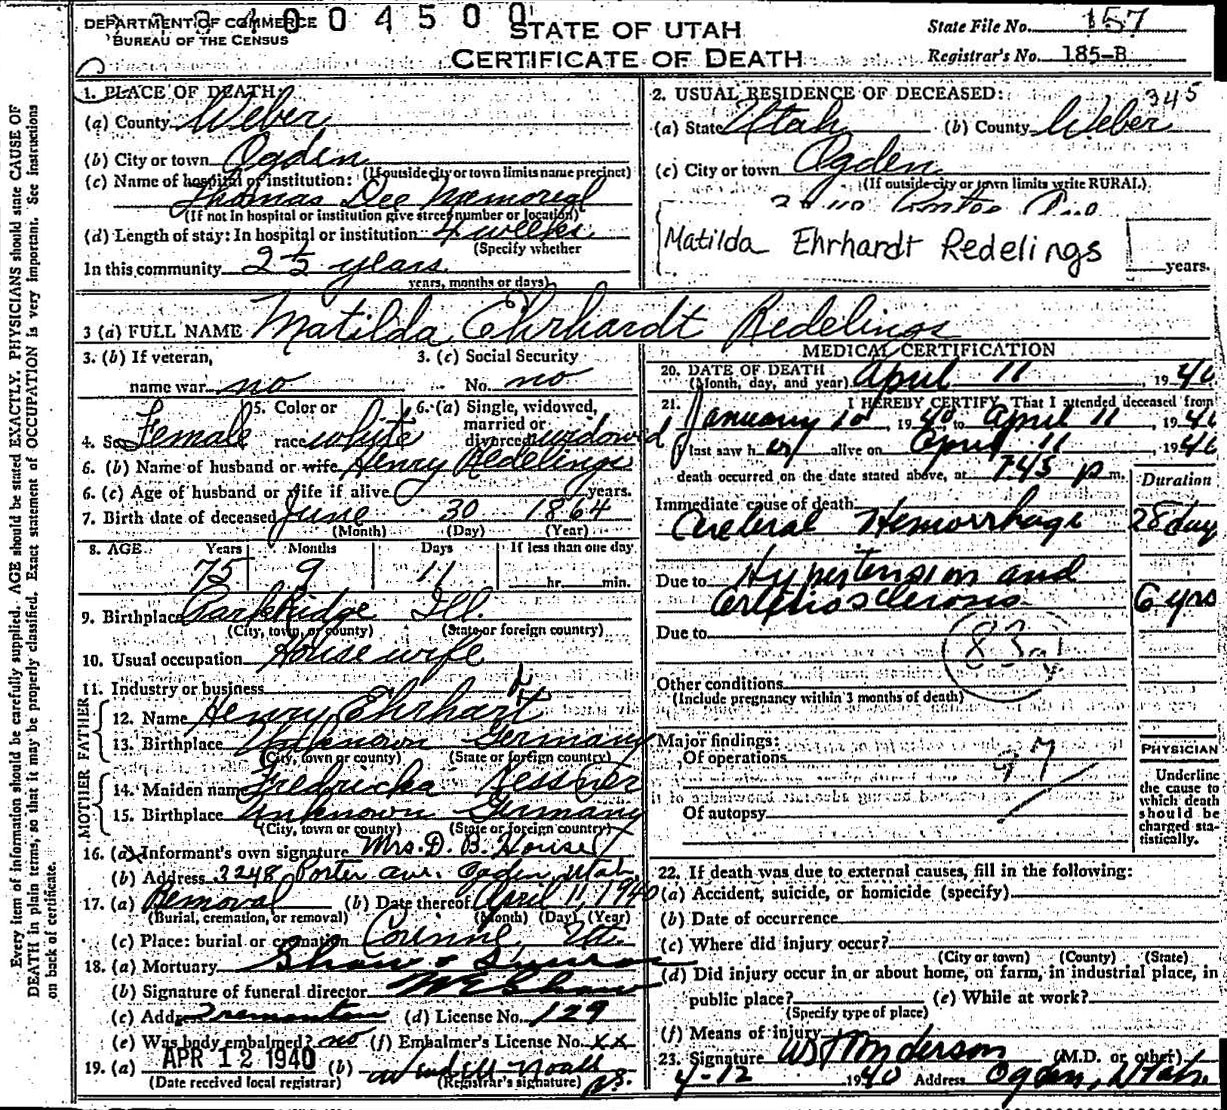 DEPARTMENT OF COMMERCE
BUREAU OF THE CENSUS
004500
STATE OF UTAH
CERTIFICATE OF DEATH
State File No. 157
Registrar's No. 185-B
1. PLACE OF DEATH:
(a) County Weber
(b) City or town Ogden
(If outside city or town limits name precinct)
(c) Name of hospital or institution:
Thomas Dee Memorial
(If not in hospital or institution give street number or location)
(d) Length of stay: In hospital or institution 4 weeks
(Specify whether
In this community 25 years
years, months or days)
2. USUAL RESIDENCE OF DECEASED: 345
(a) State Utah (b) County Weber
(c) City or town Ogden
(If outside city or town limits write RURAL)
Matilda Ehrhardt Redelings
years.
3 (a) FULL NAME Matilda Ehrhardt Redelings
3. (b) If veteran,
name war no
3. (c) Social Security
No. no
4. Sex Female
5. Color or
race white
6. (a) Single, widowed,
married or
divorced widowed
6. (b) Name of husband or wife Henry Redelings
6. (c) Age of husband or wife if alive years.
7. Birth date of deceased June 30 1864
(Month) (Day) (Year)
8. AGE Years Months Days If less than one day
75 9 11 hr. min.
9. Birthplace Park Ridge Ill.
(City, town, or county) (State or foreign country)
10. Usual occupation Housewife
11. Industry or business
FATHER
12. Name Henry Ehrhart
13. Birthplace Unknown Germany
(City, town or county) (State or foreign country)
MOTHER
14. Maiden name Fredricka Nessner
15. Birthplace Unknown Germany
(City, town or county) (State or foreign country)
16. (a) Informant's own signature Mrs. D. B. House
(b) Address 3248 Porter ave. Ogden, Utah
17. (a) Removal (b) Date thereof April 11, 1940
(Burial, cremation, or removal) (Month) (Day) (Year)
(c) Place: burial or cremation Corinne, Ut.
18. (a) Mortuary Shaw &
(b) Signature of funeral director W E Shaw
(c) Address Tremonton (d) License No. 129
(e) Was body embalmed? no (f) Embalmer's License No. xx
19. (a) APR 12 1940 (b)
(Date received local registrar) (Registrar's signature)
MEDICAL CERTIFICATION
20. DATE OF DEATH
(Month, day, and year) April 11, 1940
21. I HEREBY CERTIFY, That I attended deceased from
January 10, 1940 to April 11, 1940
I last saw her alive on April 11, 1940
death occurred on the date stated above, at 745 p m.
Duration
Immediate cause of death
Cerebral Hemorrhage 28 days
Due to Hypertension and
arteriosclerosis 6 yrs
Due to
83a
Other conditions
(Include pregnancy within 3 months of death)
Major findings:
Of operations 97
Of autopsy
PHYSICIAN
Underline
the cause to
which death
should be
charged sta-
tistically.
22. If death was due to external causes, fill in the following:
(a) Accident, suicide, or homicide (specify)
(b) Date of occurrence
(c) Where did injury occur?
(City or town) (County) (State)
(d) Did injury occur in or about home, on farm, in industrial place, in
public place? (e) While at work?
(Specify type of place)
(f) Means of injury
23. Signature Anderson (M.D. or other)
4-12 1940 Address Ogden, Utah
Every item of information should be carefully supplied. AGE should be stated EXACTLY. PHYSICIANS should state CAUSE OF
DEATH in plain terms, so that it may be properly classified. Exact statement of OCCUPATION is very important. See instructions
on back of certificate.